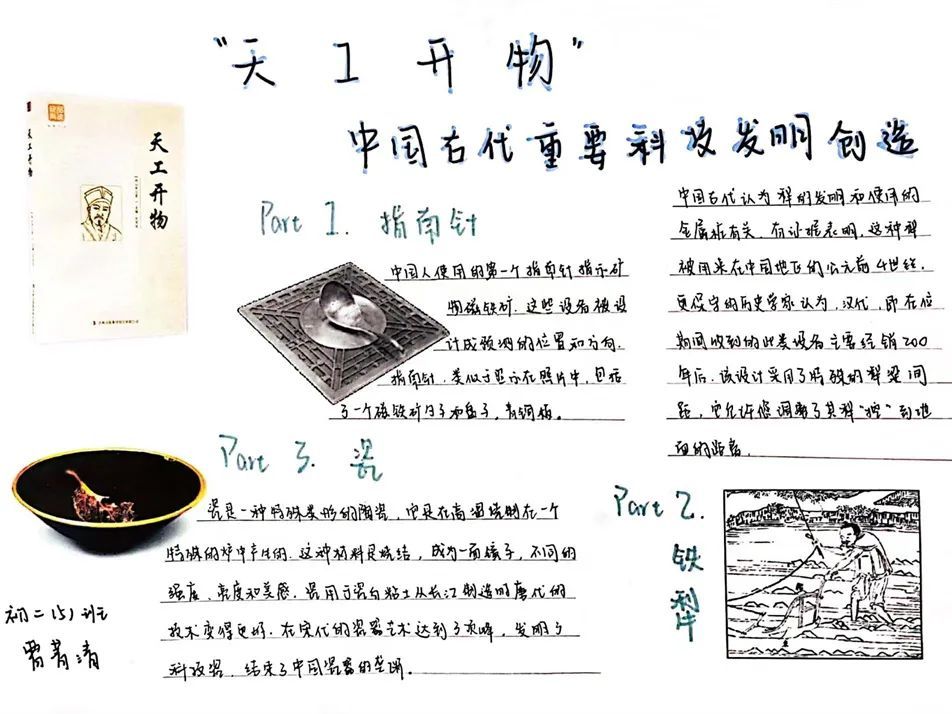 "天工开物"
中国古代重要科技发明创造
天工开物
天工开物
Part 1. 指南针
中国人使用的第一个指南针指示矿
物磁铁矿. 这些设备被设
计成预测的位置和方向.
指南针. 类似于显示在照片中, 包括
了一个磁铁矿勺子和盘子, 青铜植。
Part 2.
铁犁
中国古代认为犁的发明和使用的
金属桩有关. 有证据表明, 这种犁
被用来在中国地下的公元前4世纪.
更保守的历史学家认为, 汉代, 即在位
期间收到的此类设备主要经销200
年后. 该设计采用了特殊的犁梁间
距, 它允许您调整了其犁"挖"到地
面的距离.
Part 3. 瓷
瓷是一种特殊类形的陶瓷, 它是在高温烧制在一个
特殊的炉中产生的. 这种材料是烧结, 成为一面镜子, 不同的
强度、亮度和美感. 瓷用于蛋白粘土从长江制造的唐代的
技术变得更好. 在宋代的瓷器艺术达到了顶峰, 发明了
科技瓷. 结束了中国瓷器的垄断。
初二(5)班
贾菁清